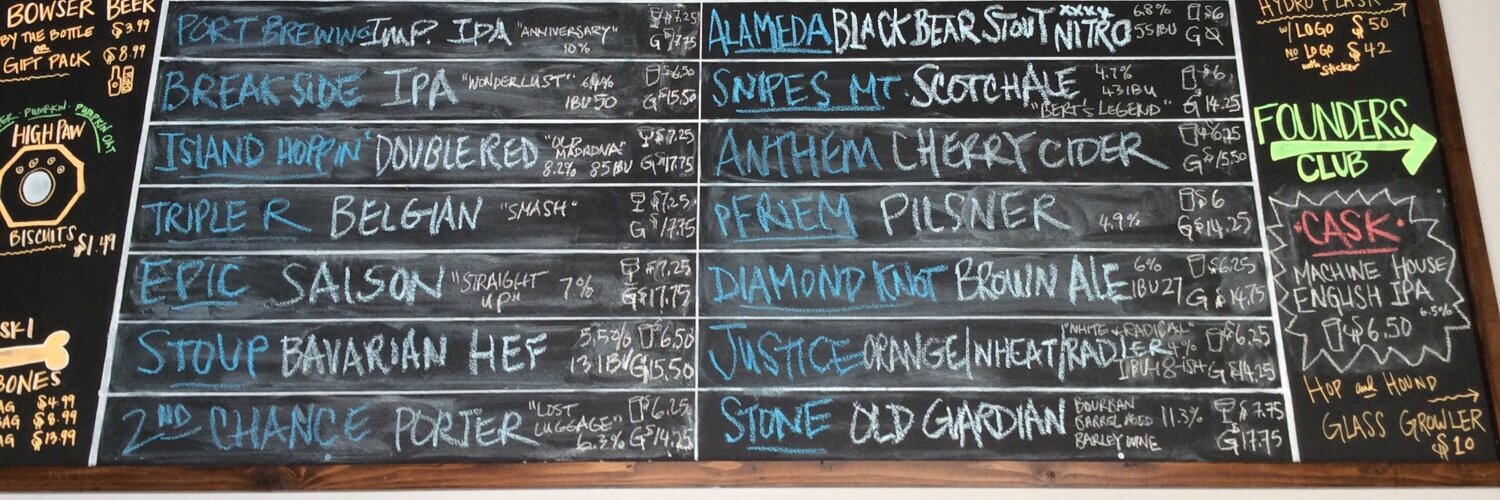 BOWSER BEER
BY THE BOTTLE $3.99
OR
GIFT PACK $8.99
PUMPKIN. PUMPKIN OAT
HIGH PAW
BISCUITS $1.49
BONES
$4.99
$8.99
$13.99
PORT BREWING IMP. IPA "ANNIVERSARY" 10% $7.25
G $17.75
BREAKSIDE IPA "WONDERLUST" 6.4% $6.50
IBU 50 G $15.50
ISLAND HOPPIN' DOUBLE RED "OLD MADRONA" $7.25
8.2% 85 IBU G $17.75
TRIPLE R BELGIAN "SMASH" $7.25
G $17.75
EPIC SAISON "STRAIGHT UP" 7% $7.25
G $17.75
STOUP BAVARIAN HEF 5.5% $6.50
13 IBU G $15.50
2ND CHANCE PORTER "LOST LUGGAGE" $6.25
6.3% G $14.25
ALAMEDA BLACK BEAR STOUT XXXX NITRO 6.8% $6
55 IBU G
SNIPES MT. SCOTCH ALE 4.7% $6
43 IBU
"BERT'S LEGEND" G 14.25
ANTHEM CHERRY CIDER $6.25
G $15.50
PFRIEM PILSNER 4.9% $6
G $14.25
DIAMOND KNOT BROWN ALE 6% $6.25
IBU 27 G $14.75
JUSTICE ORANGE/WHEAT/RADLER "WHITE & RADICAL" $6.25
4% G $14.25
STONE OLD GUARDIAN BOURBAN BARREL AGED BARLEY WINE 11.3% $7.75
G 17.75
HYDRO FLASK
W/ LOGO $50
NO LOGO $42
with Sticker
FOUNDERS
CLUB
CASK
MACHINE HOUSE
ENGLISH IPA
6.5%
$6.50
HOP and HOUND
GLASS GROWLER
$10